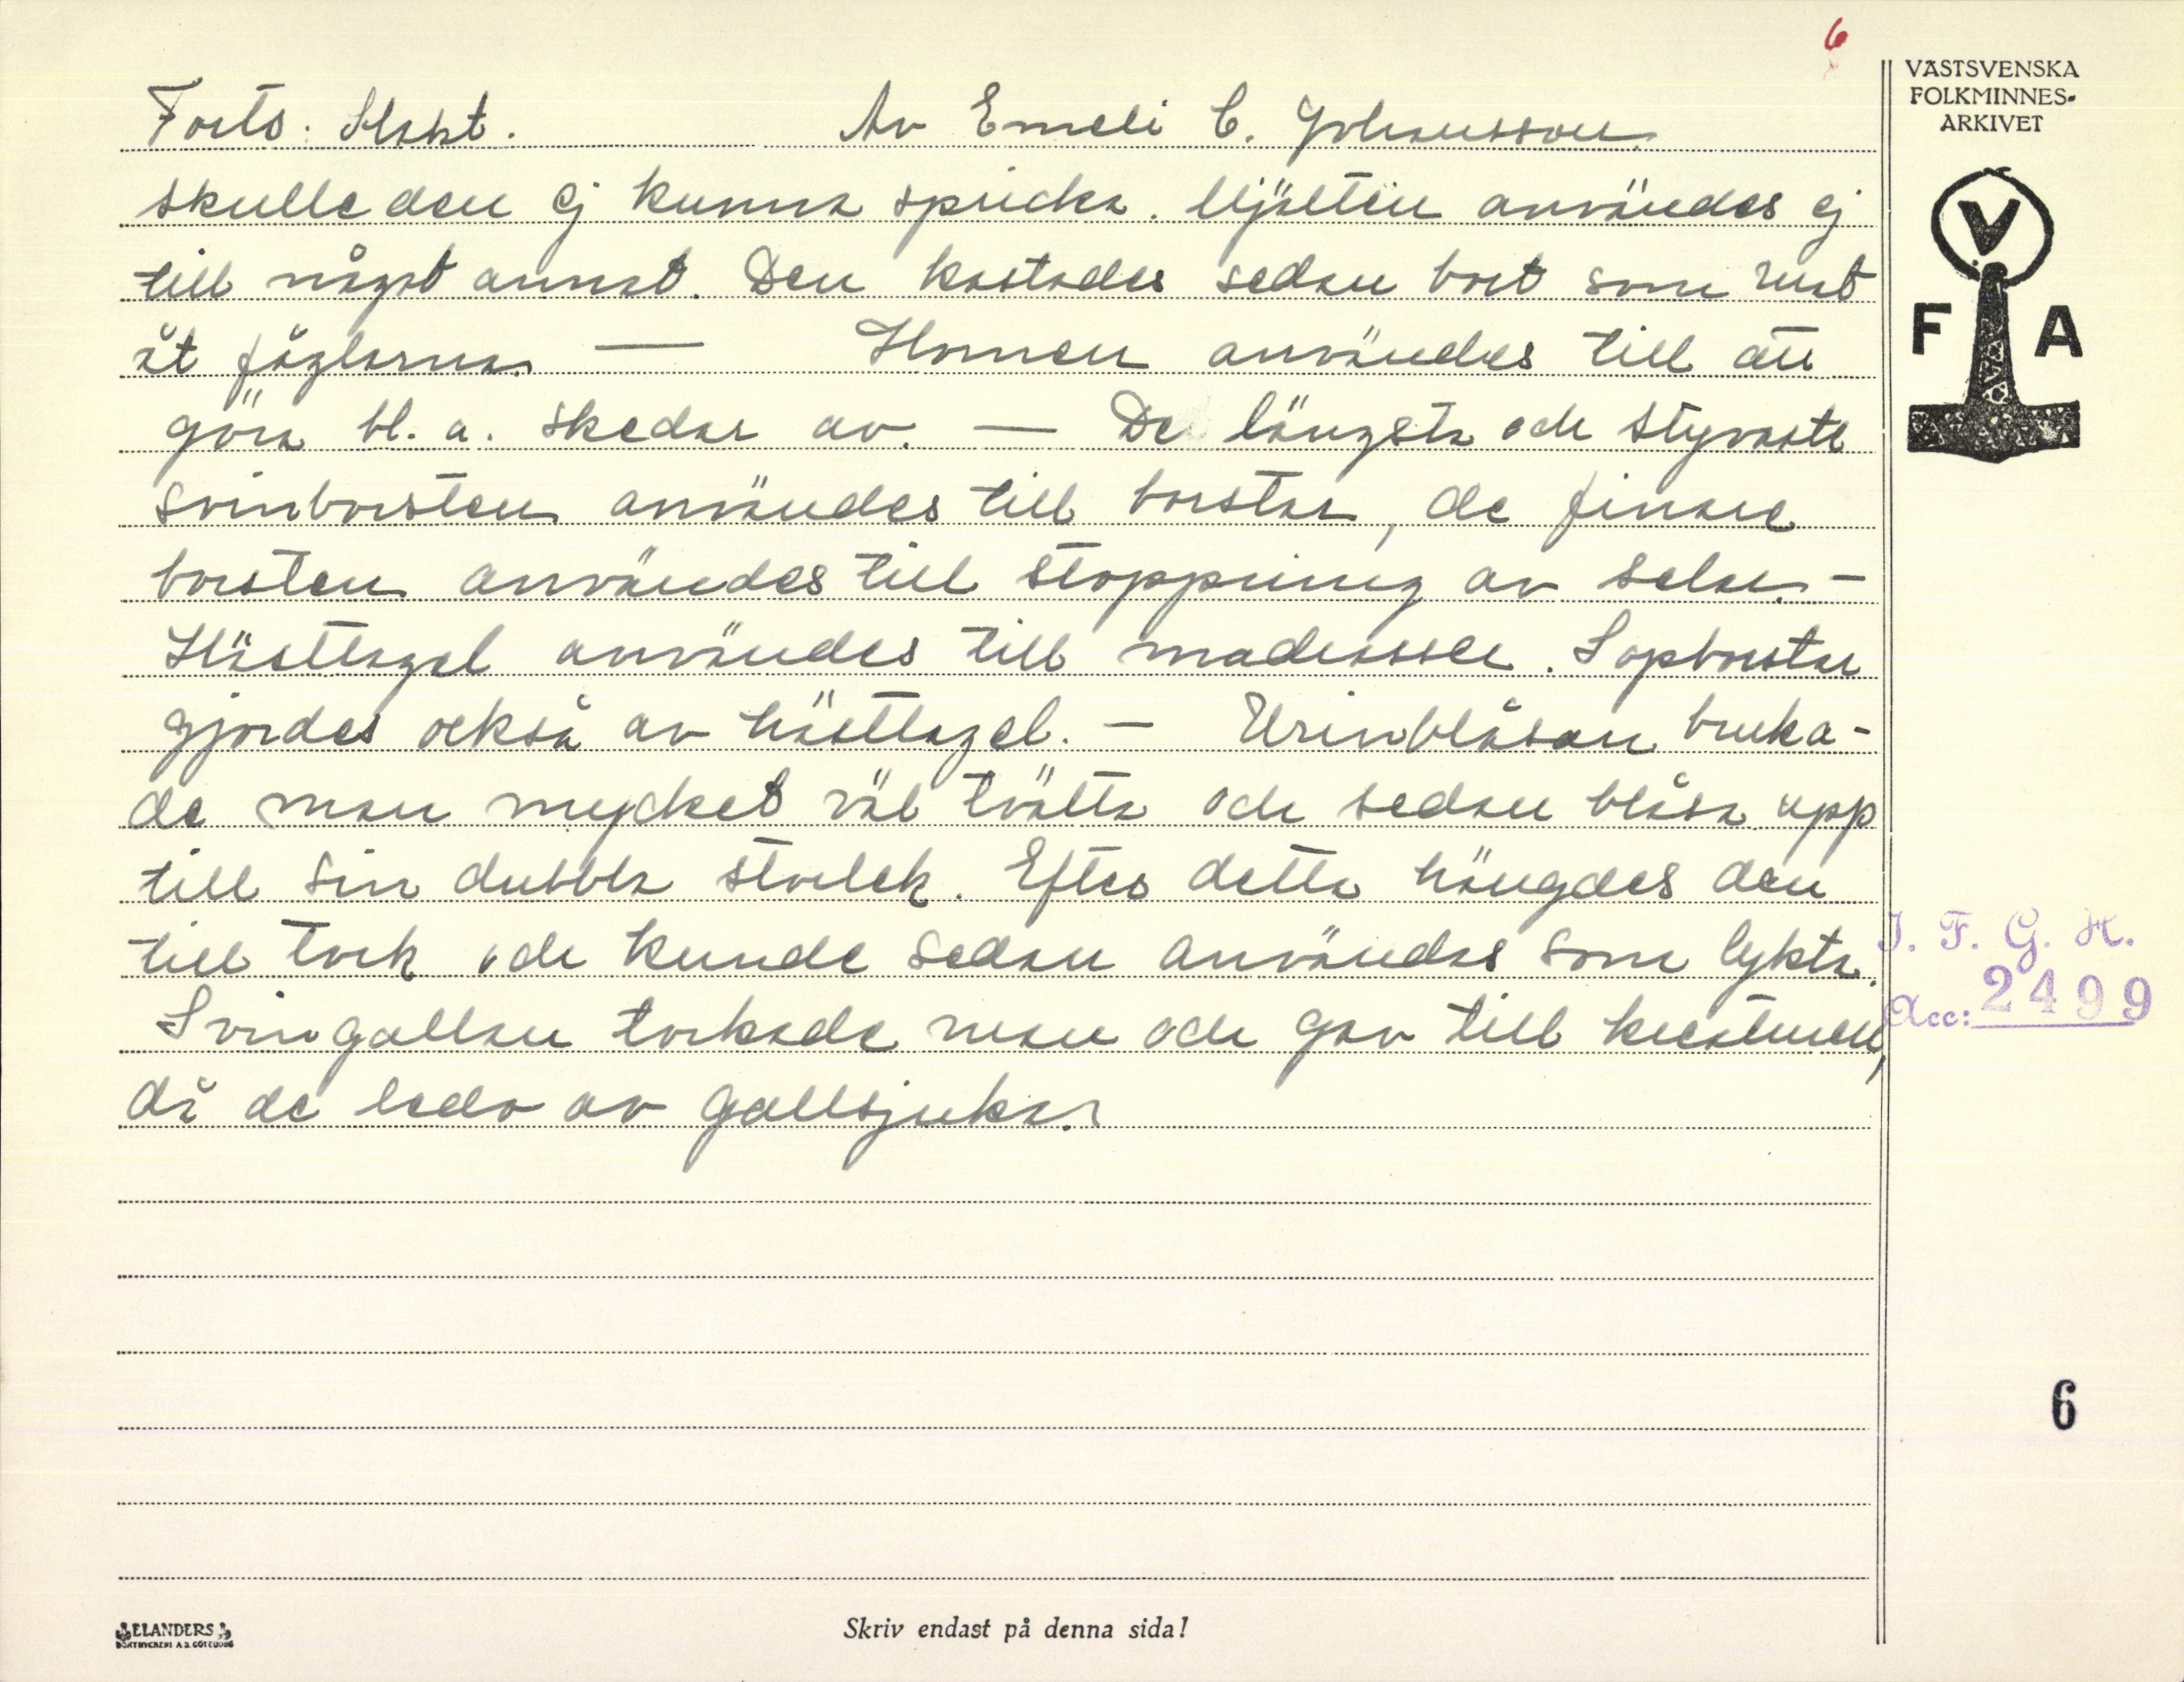 6
VÄSTSVENSKA
FOLKMINNES-
ARKIVET
V
F A
Forts. Slakt. Av Emeli C. Johansson.
skulle den ej kunna spricka. Mjälten användes ej
till något annat. Den kastades sedan bort som mat
åt fåglarna. — Hornen användes till att
göra bl. a. skedar av. — De längsta och styvaste
svinborsten användes till borstar, de finare
borsten användes till stoppning av selar. -
Hästtagel användes till madrasser. Sopborstar
gjordes också av hästtagel. — Urinblåsan bruka-
de man mycket väl tvätta och sedan blåsa upp
till sin dubbla storlek. Efter detta hängdes den
till tork och kunde sedan användas som lykta.
Svingallan torkade man och gav till kreaturen,
då de ledo av gallsjuka.
I. F. G. H.
Acc: 2499
6
ELANDERS
BOKTRYCKERI A.B. GÖTEBORG
Skriv endast på denna sida!